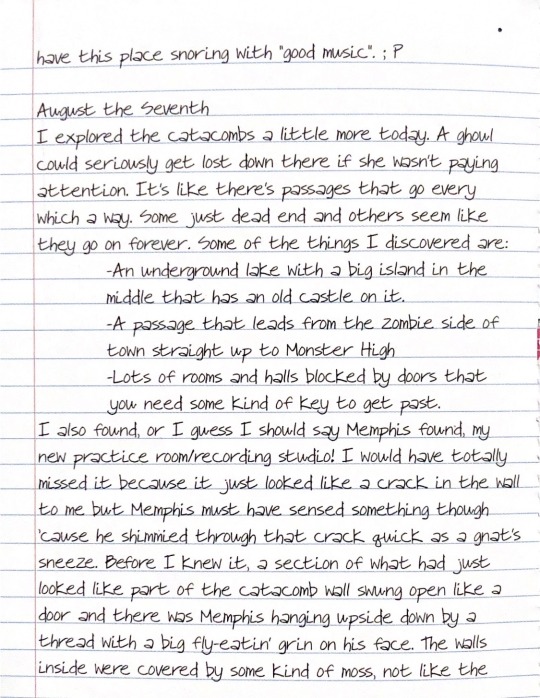 have this place snoring with "good music". ; P
August the Seventh
I explored the catacombs a little more today. A ghoul
could seriously get lost down there if she wasn't paying
attention. It's like there's passages that go every
which a way. Some just dead end and others seem like
they go on forever. Some of the things I discovered are:
-An underground lake with a big island in the
middle that has an old castle on it.
-A passage that leads from the zombie side of
town straight up to Monster High
-Lots of rooms and halls blocked by doors that
you need some kind of key to get past.
I also found, or I guess I should say Memphis found, my
new practice room/recording studio! I would have totally
missed it because it just looked like a crack in the wall
to me but Memphis must have sensed something though
'cause he shimmied through that crack quick as a gnat's
sneeze. Before I knew it, a section of what had just
looked like part of the catacomb wall swung open like a
door and there was Memphis hanging upside down by a
thread with a big fly-eatin' grin on his face. The walls
inside were covered by some kind of moss, not like the